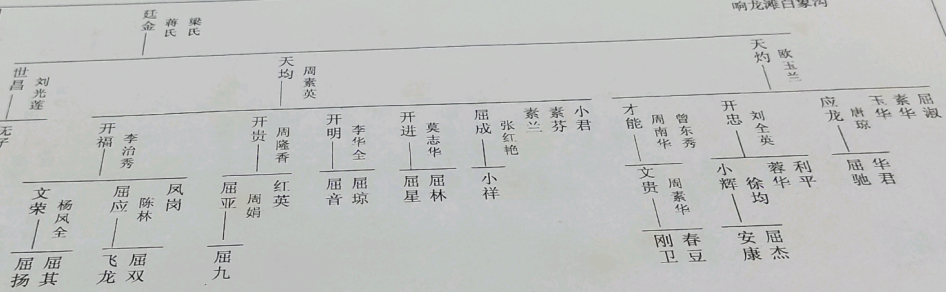 响龙滩白象沟
廷金
蒋氏
梁氏
世昌
刘光莲
天均
周素英
天灼
欧玉兰
无子
开福
李治秀
开贵
周隆香
开明
李华全
开进
莫志华
屈成
张红艳
素兰
素芬
小君
才能
周南华
曾东秀
开忠
刘全英
应龙
唐琼
玉华
素华
屈淑
文荣
杨风全
屈应
陈林
凤岗
屈亚
周娟
红英
屈音
屈琼
屈星
屈林
小祥
文贵
周素华
小辉
徐均
蓉华
利平
屈驰
华君
屈扬
屈其
飞龙
屈双
屈九
刚卫
春豆
安康
屈杰